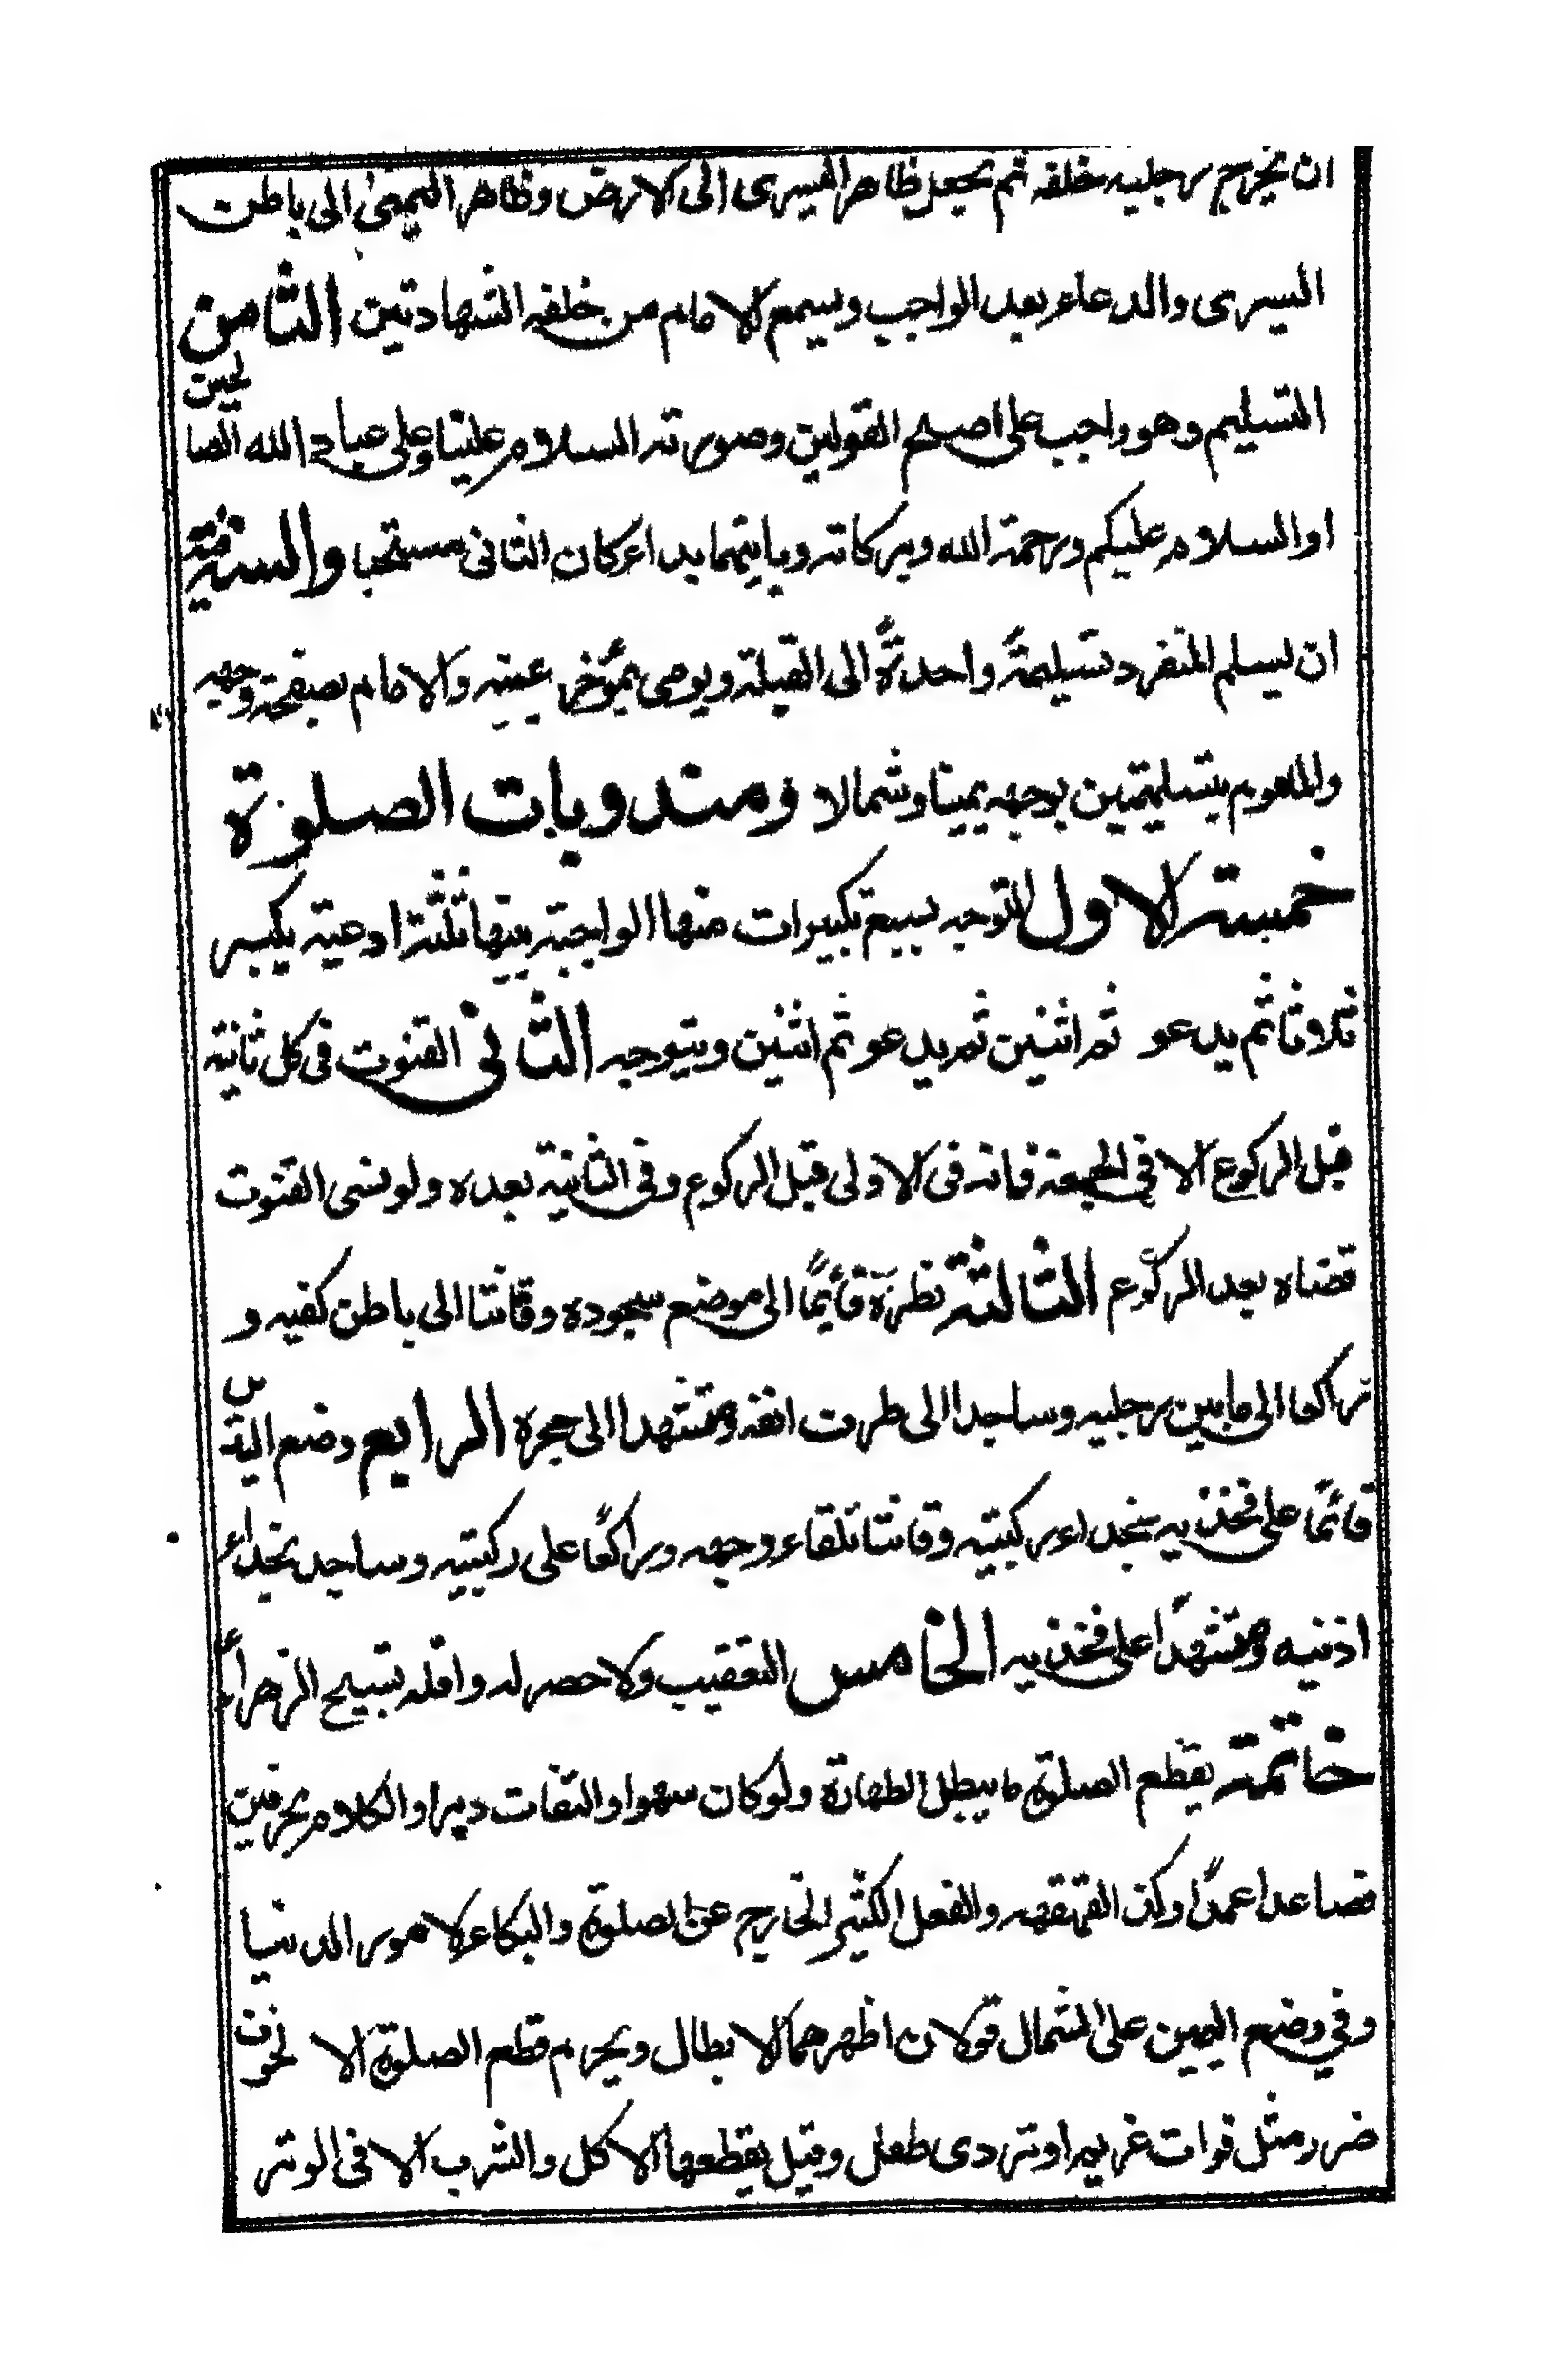 ان يخرج رجليه خلفه ثم يجعل ظاهر اليسرى الى الارض وظاهر اليمنى الى باطن
اليسرى والدعاء بعد الواجب ويسمع الامام من خلفه الشهادتين الثامن
التسليم وهو واجب على اصح القولين وصورته السلام علينا وعلى عباد الله الصالحين
او السلام عليكم ورحمة الله وبركاته وبايتهما بدا عركان الثانى مستحبا والسنة فيه
ان يسلم المنفرد تسليمةً واحدةً الى القبلة ويومى بمؤخر عينيه والامام بصفحة وجهه
والماموم بتسليمتين بوجهه يمينا وشمالا ومندوبات الصلوة
خمسة الاول التوجه بسبع تكبيرات منها الواجبة بينها ثلثة ادعية يكبر
ثلاثا ثم يدعو ثم اثنين ثم يدعو ثم اثنين ويتوجه الثانى القنوت فى كل ثانية
قبل الركوع الا فى الجمعة فانه فى الاولى قبل الركوع وفى الثانية بعده ولو نسى القنوت
قضاه بعد الركوع الثالثة نظره قائمًا الى موضع سجوده وقانتا الى باطن كفيه و
راكعا الى مابين رجليه وساجدا الى طرف انفه ومتشهدا الى حجره الرابع وضع اليدين
قائمًا على فخذيه بحذاء ركبتيه وقانتا تلقاء وجهه وراكعًا على ركبتيه وساجد بحذاء
اذنيه ومتشهدًا على فخذيه الخامس التعقيب ولا حصر له وافله تسبيح الزهراء
خاتمة يقطع الصلوة ما يبطل الطهارة ولو كان سهوا والتفات دبرا والكلام بحرفين
فصاعدا عمدًا وكذ القهقهه والفعل الكثير الخارج عن الصلوة والبكاء لامور الدنيا
وفي وضع اليمين على الشمال قولان اظهرهما الابطال ويحرم قطع الصلوة الا لخوف
ضرر مثل فوات غريم او تردى طفل وقيل يقطعها الاكل والشرب الا فى الوتر